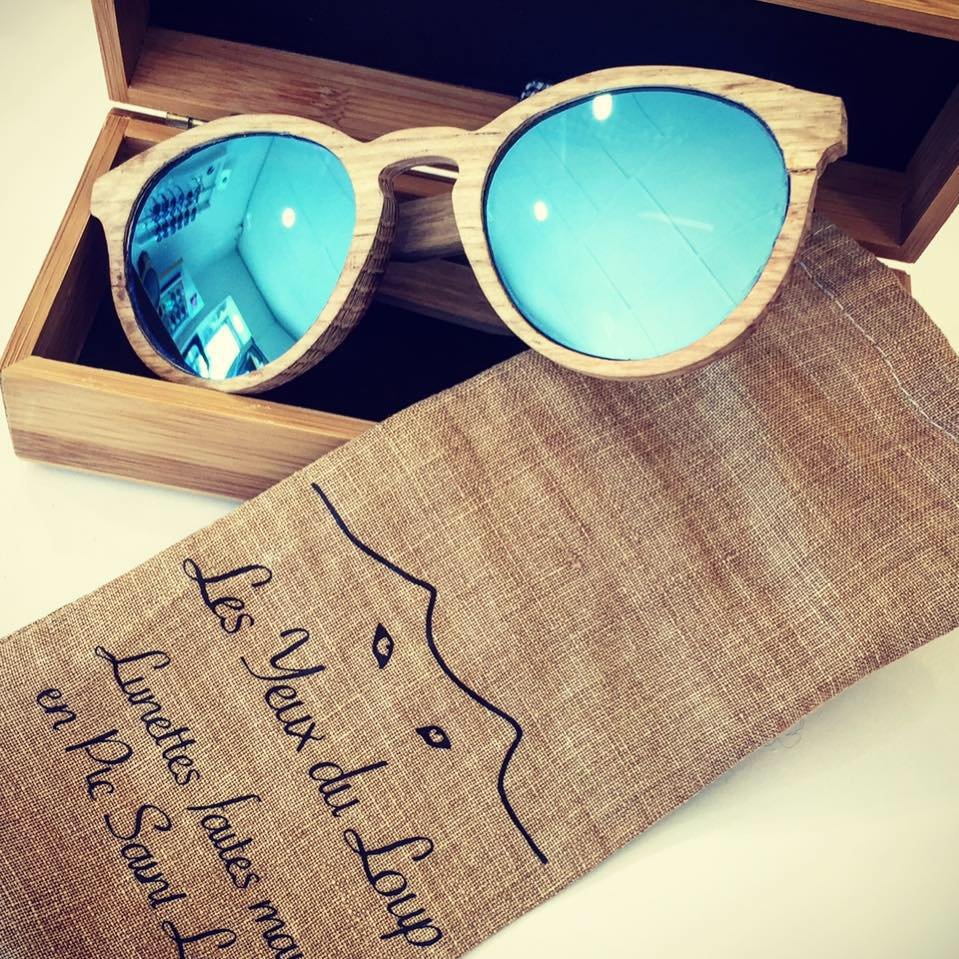 Les Yeux du Loup
Lunettes faites
en Pic Saint